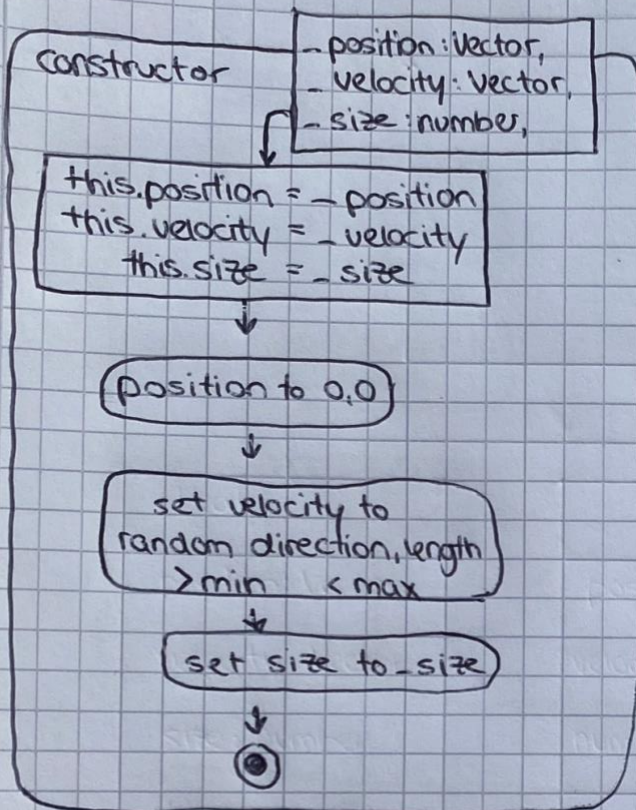 constructor
_ position : Vector,
_ velocity : Vector,
_ size : number,
this.position = _ position
this.velocity = _ velocity
this.size = _ size
position to 0,0
set velocity to
random direction, length
>min <max
set size to _size